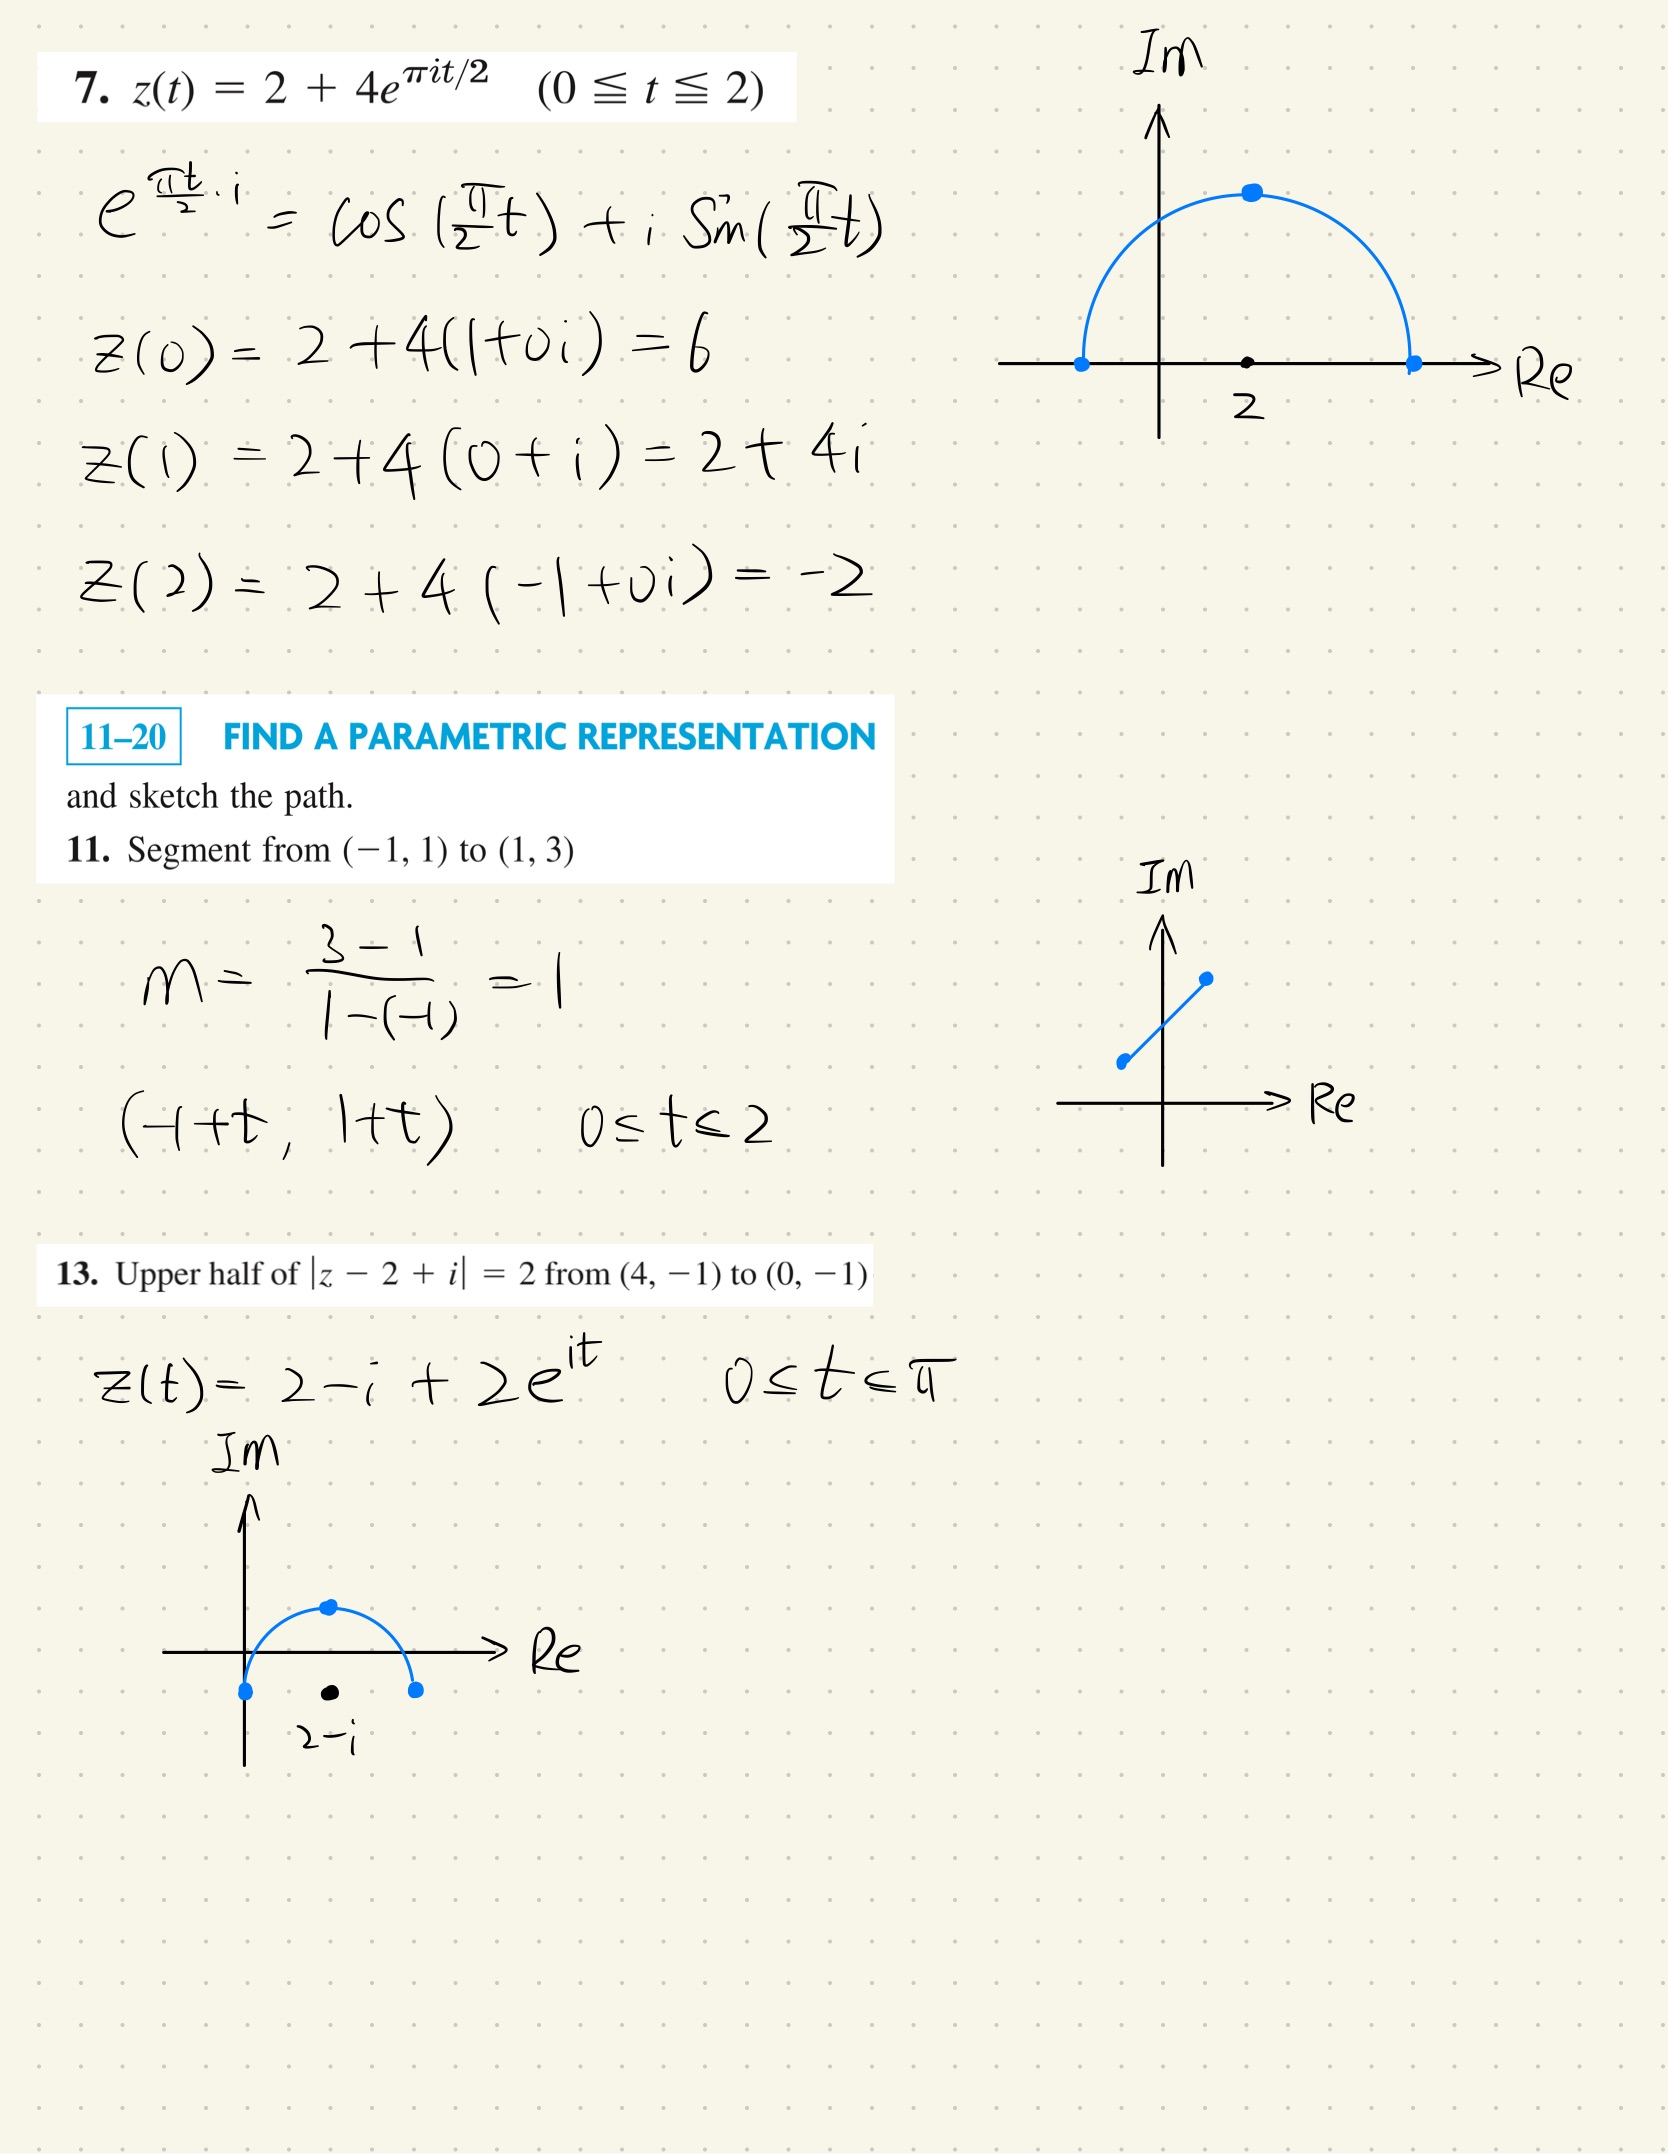 7. z(t) = 2 + 4e^{πit/2} (0 ≦ t ≦ 2)
e^{\frac{πt}{2}·i} = cos(\frac{π}{2}t) + i Sin(\frac{π}{2}t)
z(0) = 2 + 4(1+0i) = 6
z(1) = 2+4(0+i) = 2+4i
z(2) = 2+4(-1+0i) = -2
Im
Re
2
11–20 FIND A PARAMETRIC REPRESENTATION
and sketch the path.
11. Segment from (−1, 1) to (1, 3)
m = \frac{3-1}{1-(-1)} = 1
(-1+t, 1+t) 0≤t≤2
Im
Re
13. Upper half of |z − 2 + i| = 2 from (4, −1) to (0, −1)
z(t) = 2-i + 2e^{it} 0≤t≤π
Im
Re
2-i